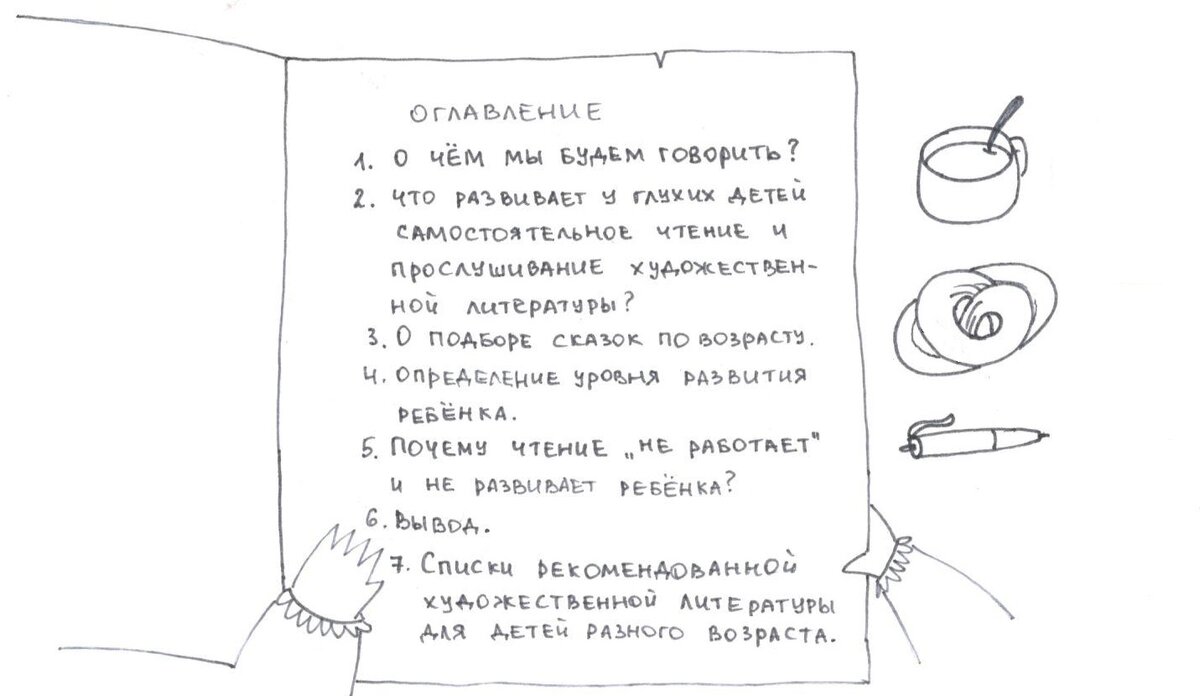 ОГЛАВЛЕНИЕ
1. О ЧЁМ МЫ БУДЕМ ГОВОРИТЬ?
2. ЧТО РАЗВИВАЕТ У ГЛУХИХ ДЕТЕЙ
САМОСТОЯТЕЛЬНОЕ ЧТЕНИЕ И
ПРОСЛУШИВАНИЕ ХУДОЖЕСТВЕН-
НОЙ ЛИТЕРАТУРЫ?
3. О ПОДБОРЕ СКАЗОК ПО ВОЗРАСТУ.
4. ОПРЕДЕЛЕНИЕ УРОВНЯ РАЗВИТИЯ
РЕБЁНКА.
5. ПОЧЕМУ ЧТЕНИЕ „НЕ РАБОТАЕТ"
И НЕ РАЗВИВАЕТ РЕБЁНКА?
6. ВЫВОД.
7. СПИСКИ РЕКОМЕНДОВАННОЙ
ХУДОЖЕСТВЕННОЙ ЛИТЕРАТУРЫ
ДЛЯ ДЕТЕЙ РАЗНОГО ВОЗРАСТА.